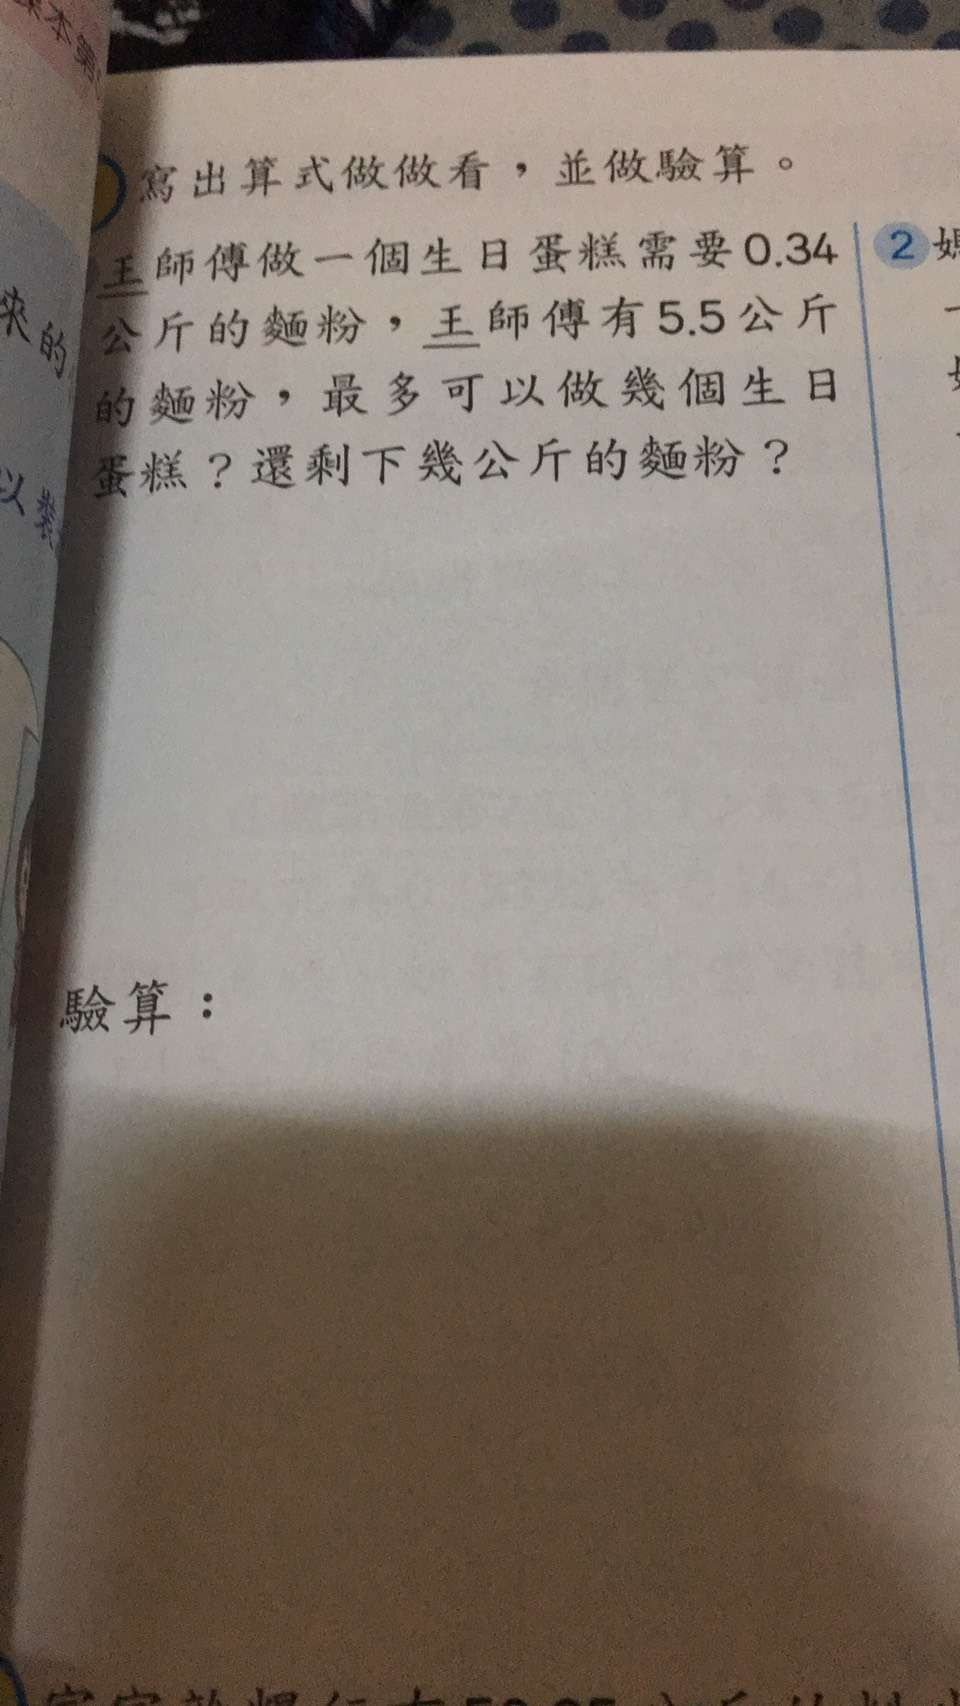 課本第
來的
以裝
寫出算式做做看，並做驗算。
王師傅做一個生日蛋糕需要0.34
公斤的麵粉，王師傅有5.5公斤
的麵粉，最多可以做幾個生日
蛋糕？還剩下幾公斤的麵粉？
驗算：
2 媽
一